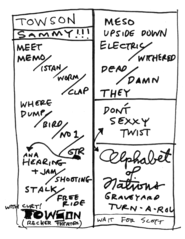 TOWSON
SAMMY!!!
MEET
MEMO/
ISTAN/
WORM/
CLAP
WHERE
DUMP/
BIRD/
NO 1
GTR
ANA
HEARING
+ JAM/
SHOOTING
STALK/
FREE
RIDE
WITH CURT!
TOWSON
(RECHER THEATRE)
MESO
UPSIDE DOWN
ELECTRIC/
WITHERED
DEAD/
DAMN
THEY
DON'T
SEXXY
TWIST
Alphabet
of
Nations
GRAVEYARD
TURN-A-ROU
WAIT FOR SCOTT